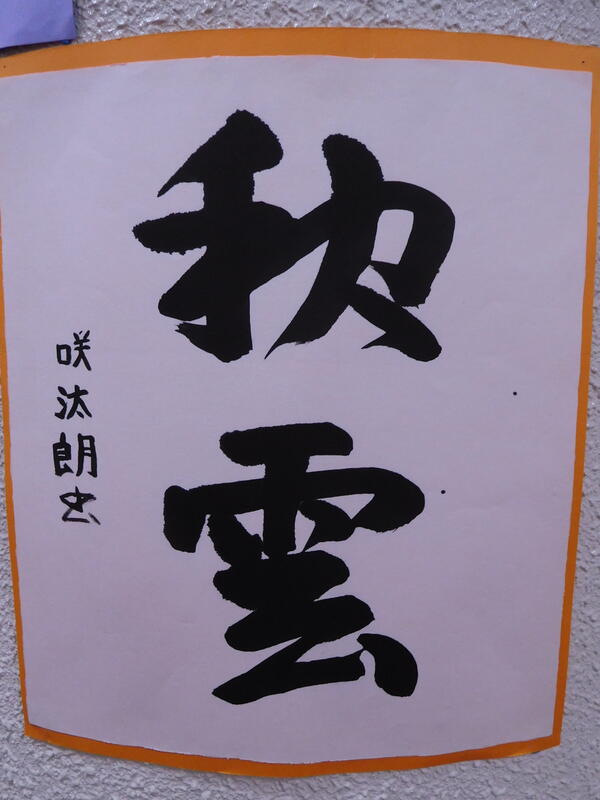 秋雲
咲汰朗書